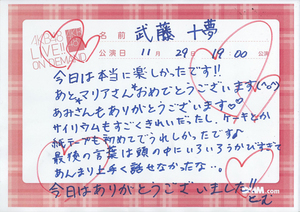 AKB48
LIVE!!
ON DEMAND
名前 武藤 十夢
公演日 11月29日 19:00 公演
今日は本当に楽しかったです!!
あと、マリアさんおめでとうございます(^o^)
あみさんもありがとうございます♡♡
サイリウムもすごくきれいだったし、ケーキとか
紙テープも初めてでうれしかったです♪
最後の言葉は頭の中にいろいろうかびすぎて
あんまり上手く話せなかったな…。
今日はありがとうございました!!
とむ
DMM.com